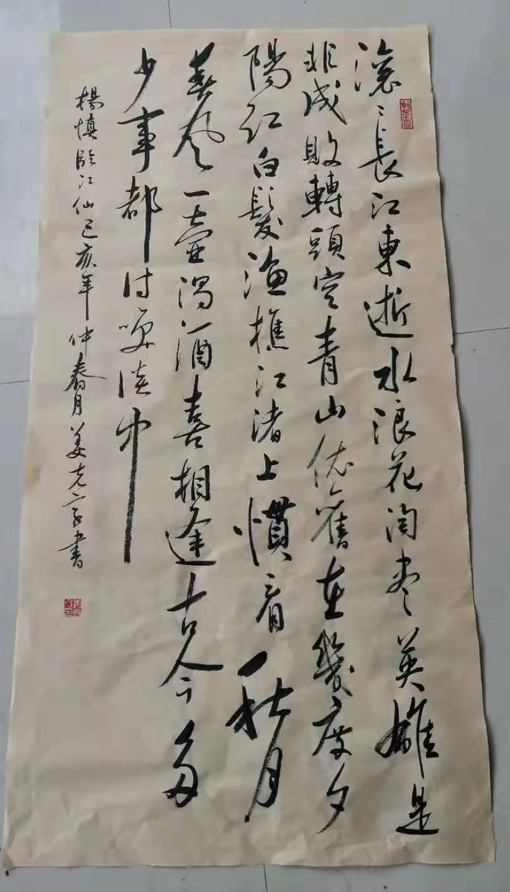 滚〻長江東逝水浪花淘尽英雄是
非成敗轉頭空青山依舊在幾度夕
陽紅白髮漁樵江渚上慣看秋月
春風一壺濁酒喜相逢古今多
少事都付笑談中
楊慎臨江仙己亥年仲春月姜克方書